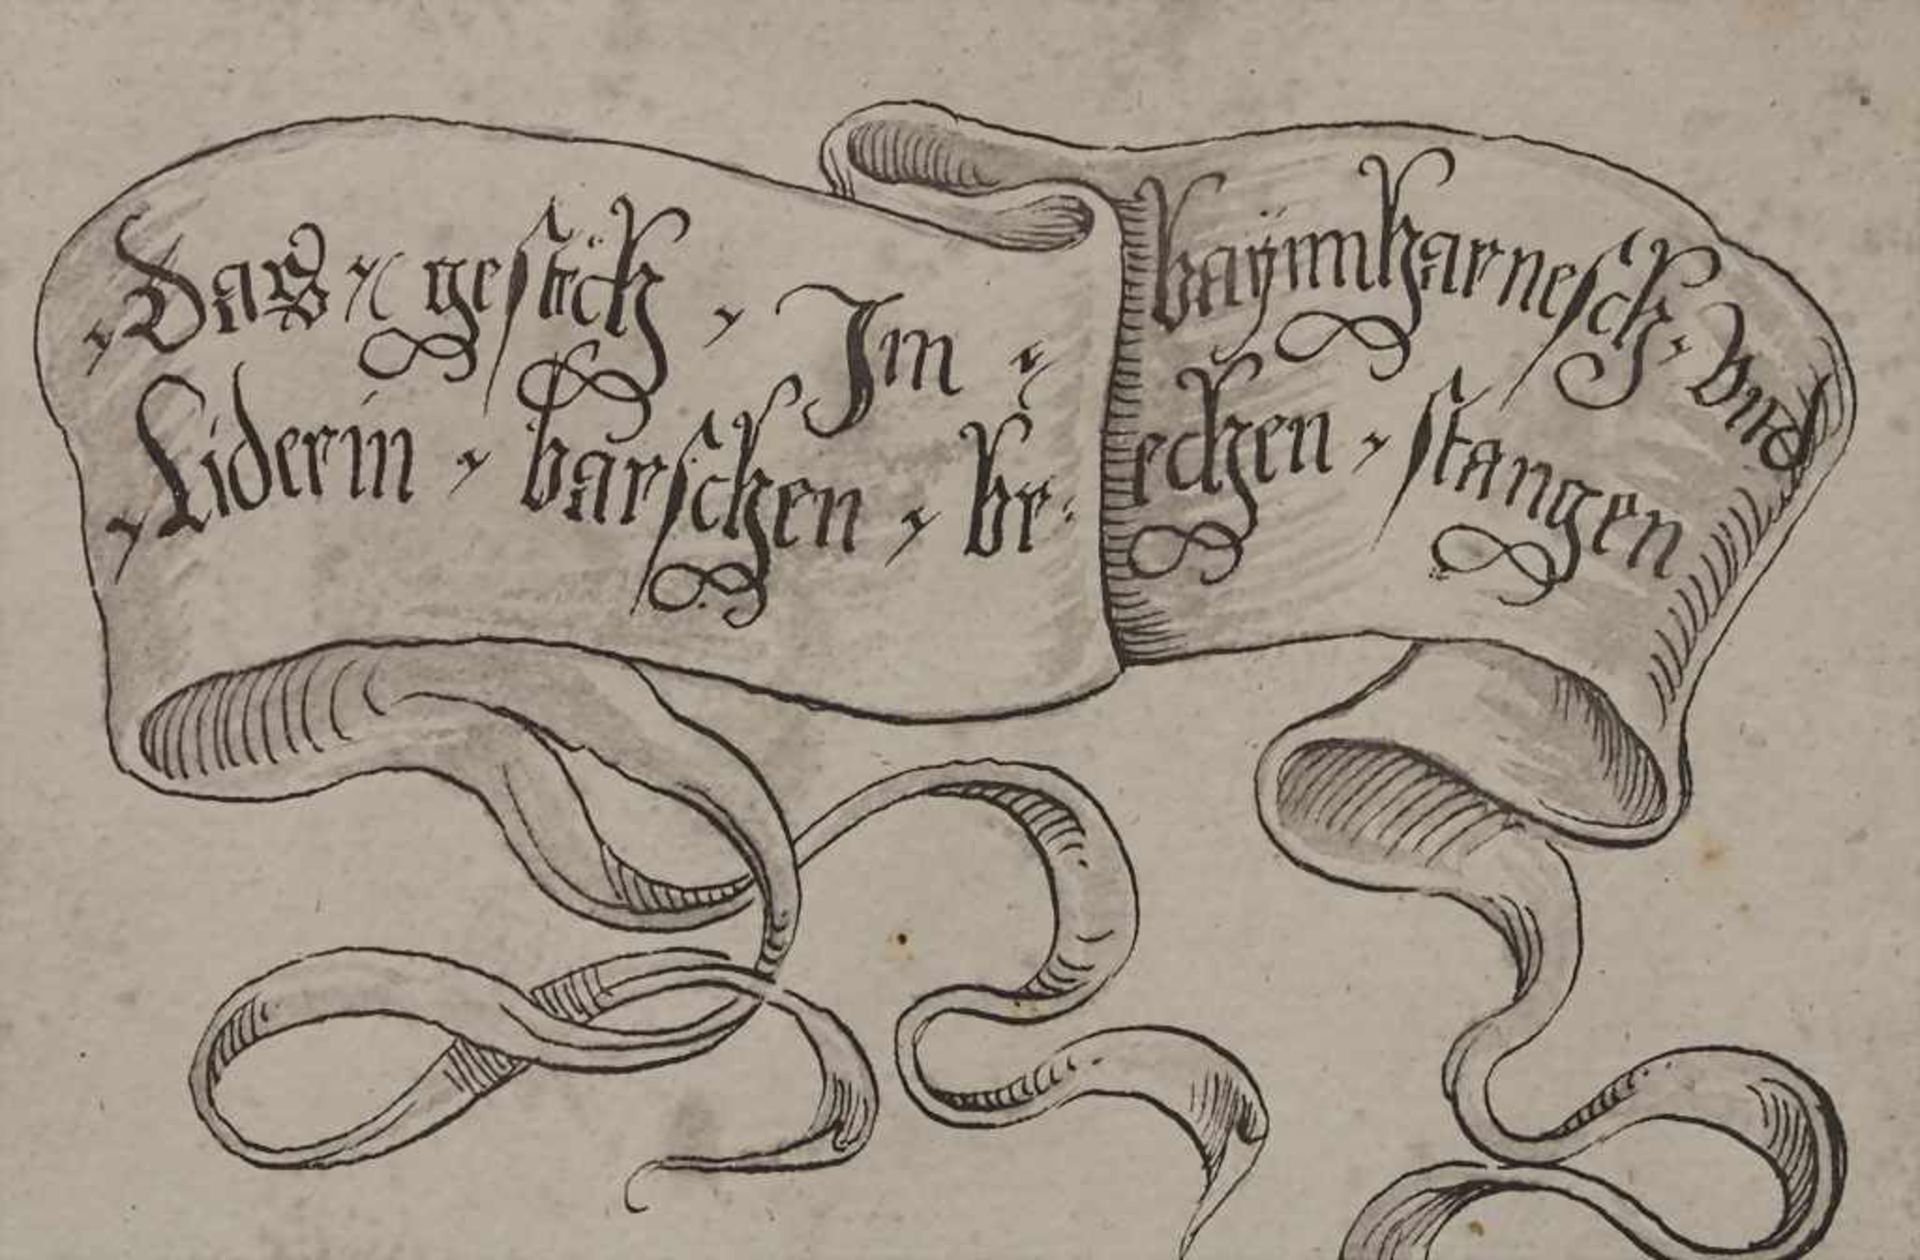 Das gestich Im baÿmharnesch vnd
Liderin barschen brechen stangen